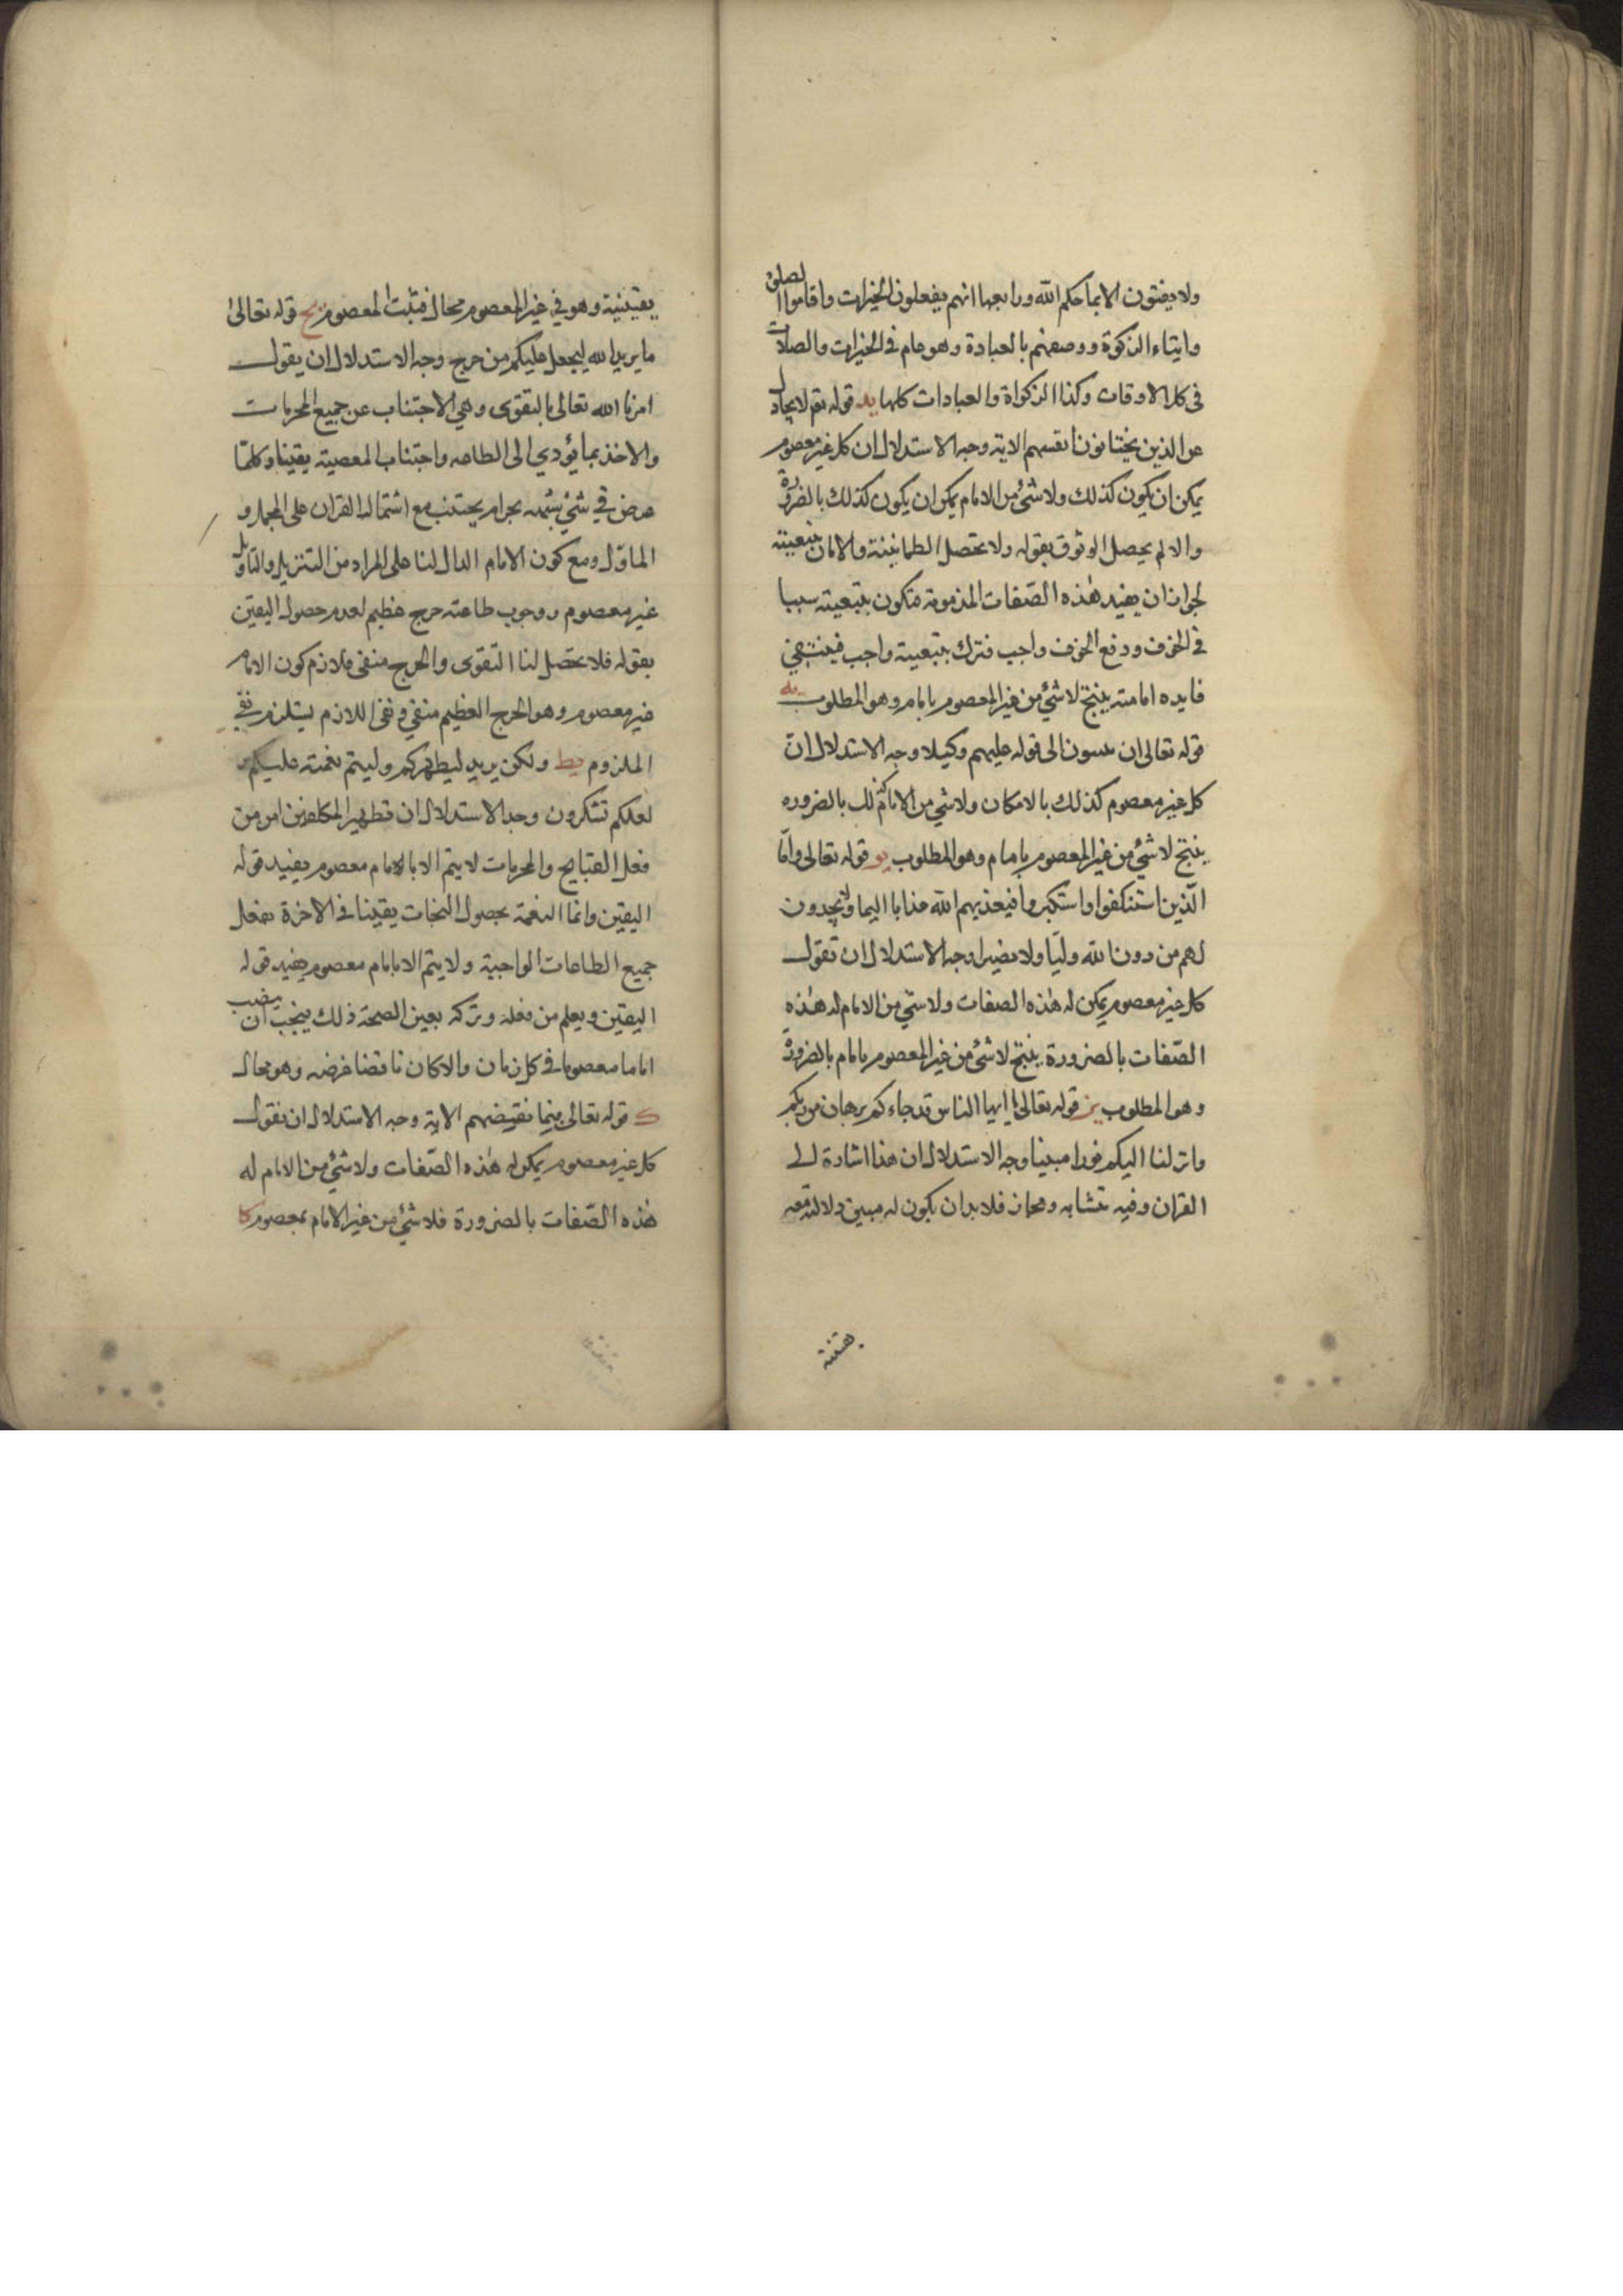 ولا يفتون الا بما حكم الله ورابعها انهم يفعلون الخيرات واقاموا الصلوة
وايتاء الزكوة ووصفهم بالعبادة وهو عام في الخيرات والصلات
في كل الاوقات وكذا الزكواة والعبادات كلها يد قوله تعم لا تجادل
عن الذين يختانون انفسهم الاية وجه الاستدلال ان كل غير معصوم
يمكن ان يكون كذلك ولا شئ من الامام يمكن ان يكون كذلك بالضرورة
والا لم يحصل الوثوق بقوله ولا تحصل الطمانينة والامان بتبعيته
لجواز ان يفيد هذه الصفات المذمومة فتكون بتبعيته سببا
في الخوف ودفع الخوف واجب فترك بتبعيته واجب فينتفي
فايده امامته ينتج لا شئ من غير المعصوم بامام وهو المطلوب يه
قوله تعالى ان الى قوله عليهم وكيلا وجه الاستدلال ان
كل غير معصوم كذلك بالامكان ولا شي من الامام كذلك بالضروره
ينتج لا شئ من غير المعصوم بامام وهو المطلوب يو قوله تعالى واما
الذين استنكفوا واستكبروا فيعذبهم الله عذابا اليما ولا يجدون
لهم من دون الله وليا ولا نصيرا وجه الاستدلال ان تقول
كل غير معصوم يمكن له هذه الصفات ولا شي من الامام له هذه
الصفات بالضرورة ينتج لا شئ من غير المعصوم بامام بالضرورة
وهو المطلوب يز قوله تعالى يا ايها الناس قد جاءكم برهان من ربكم
وانزلنا اليكم نورا مبينا وجه الاستدلال ان هذا اشارة الى
القران وفيه متشابه ومجاز فلا بد ان يكون له مبين دلالته
يقينية
يقينية وهو في غير المعصوم محال فثبت المعصوم يح قوله تعالى
ما يريد الله ليجعل عليكم من حرج وجه الاستدلال ان يقول
امرنا الله تعالى بالتقوى وهي الاجتناب عن جميع المحرمات
والاخذ بما يؤدي الى الطاعه واجتناب المعصية يقينا وكلما
عرض في شئ شبهه بحرام يجتنب مع اشتمال القران على المجمل و
الماؤل ومع كون الامام الدال لنا على المراد من التنزيل والتاويل
غير معصوم ووجوب طاعته حرج عظيم لعدم حصول اليقين
بقوله فلا تحصل لنا التقوى والحرج منفى فلازم كون الامام
غير معصوم وهو الحرج العظيم منفي ونفى اللازم يستلزم نفي
الملزوم يط ولكن يريد ليطهركم وليتم نعمته عليكم
لعلكم تشكرون وجه الاستدلال ان تطهير المكلفين من
فعل القبايح والمحرمات لا يتم الا بالامام معصوم يفيد قوله
اليقين وانما النعمة بحصول النجات يقينا في الاخرة بفعل
جميع الطاعات الواجبة ولا يتم الا بامام معصوم يفيد قوله
اليقين ويعلم من فعله وتركه بعين الصحة ذلك فيجب ان ينصب
اماما معصوما في كل زمان والا كان ناقضا غرضه وهو محال
ك قوله تعالى فبما نقضهم الاية وجه الاستدلال ان نقول
كل غير معصوم يمكن له هذه الصفات ولا شئ من الامام له
هذه الصفات بالضرورة فلا شئ من غير الامام بمعصوم كا